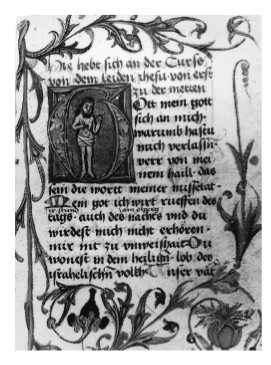 Hie hebt sich an der Curss
von dem leiden Jhesu von erst
zu der metten
Ott mein gott
sich an mich
warumb hastu
mich verlassn
verr von mei
nem haill. das
sein die wortt meiner missetat.
Mein got ich wirt rueffen des
tags. auch des nachts vnd du
wirdest mich nicht erhören.
mir nit zu vnweishait Du
wonest in dem heilign. lob des
israhelischn volkh. Vnser vat